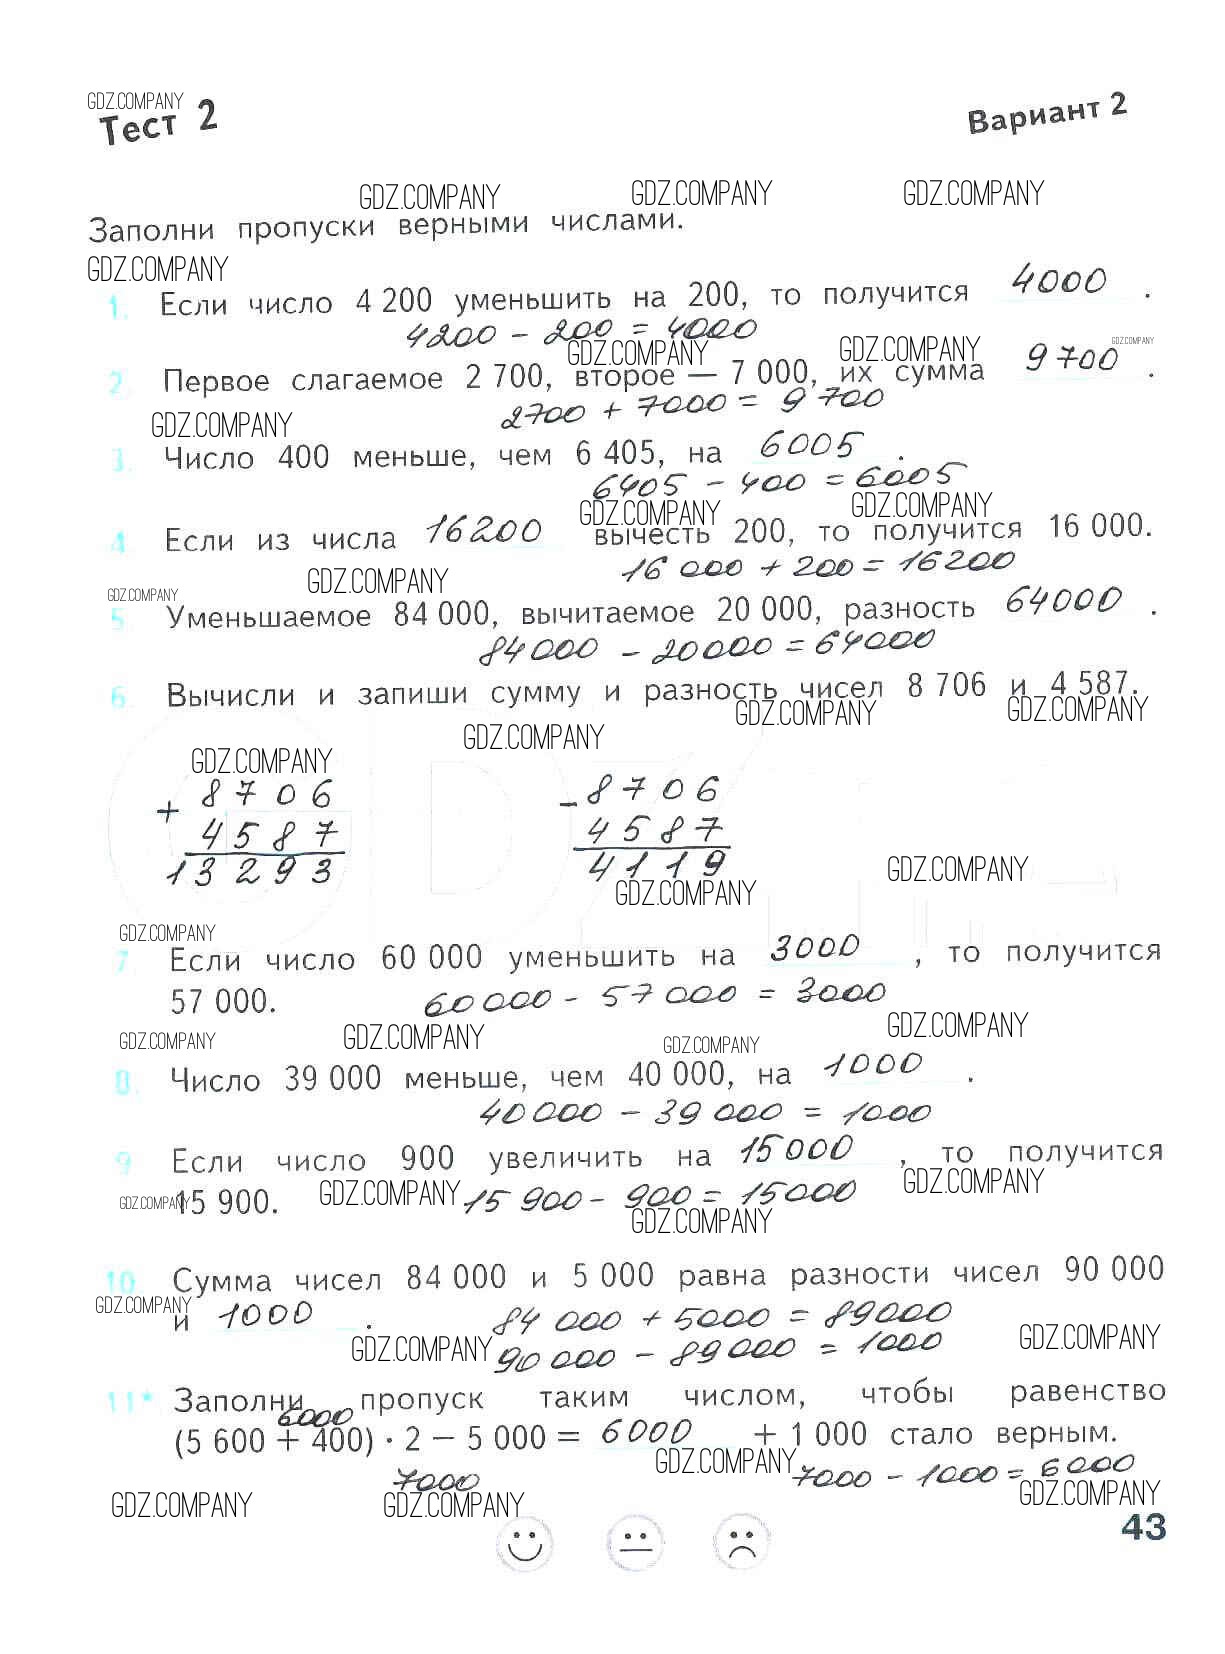 GDZ.COMPANY
Тест 2 Вариант 2
GDZ.COMPANY GDZ.COMPANY GDZ.COMPANY
Заполни пропуски верными числами.
GDZ.COMPANY
1. Если число 4 200 уменьшить на 200, то получится 4000 .
4200 - 200 = 4000
GDZ.COMPANY GDZ.COMPANY GDZ.COMPANY
2. Первое слагаемое 2 700, второе — 7 000, их сумма 9700 .
2700 + 7000 = 9700
GDZ.COMPANY
3. Число 400 меньше, чем 6 405, на 6005 .
6405 - 400 = 6005
GDZ.COMPANY GDZ.COMPANY
4. Если из числа 16200 вычесть 200, то получится 16 000.
16 000 + 200 = 16200
GDZ.COMPANY
GDZ.COMPANY
5. Уменьшаемое 84 000, вычитаемое 20 000, разность 64000 .
84000 - 20000 = 64000
6. Вычисли и запиши сумму и разность чисел 8 706 и 4 587.
GDZ.COMPANY GDZ.COMPANY
GDZ.COMPANY
GDZ.COMPANY
+ 8706 - 8706
4587 4587
13293 4119
GDZ.COMPANY
GDZ.COMPANY
GDZ.COMPANY
7. Если число 60 000 уменьшить на 3000 , то получится
57 000. 60000 - 57000 = 3000
GDZ.COMPANY GDZ.COMPANY GDZ.COMPANY GDZ.COMPANY
8. Число 39 000 меньше, чем 40 000, на 1000 .
40000 - 39000 = 1000
9. Если число 900 увеличить на 15000 , то получится
15 900. 15 900 - 900 = 15000
GDZ.COMPANY GDZ.COMPANY GDZ.COMPANY
GDZ.COMPANY
10. Сумма чисел 84 000 и 5 000 равна разности чисел 90 000
GDZ.COMPANY
и 1000 . 84 000 + 5000 = 89000
GDZ.COMPANY 90 000 - 89000 = 1000 GDZ.COMPANY
11* Заполни пропуск таким числом, чтобы равенство
6000
(5 600 + 400) · 2 — 5 000 = 6000 + 1 000 стало верным.
GDZ.COMPANY
7000 7000 - 1000 = 6000
GDZ.COMPANY GDZ.COMPANY GDZ.COMPANY
43